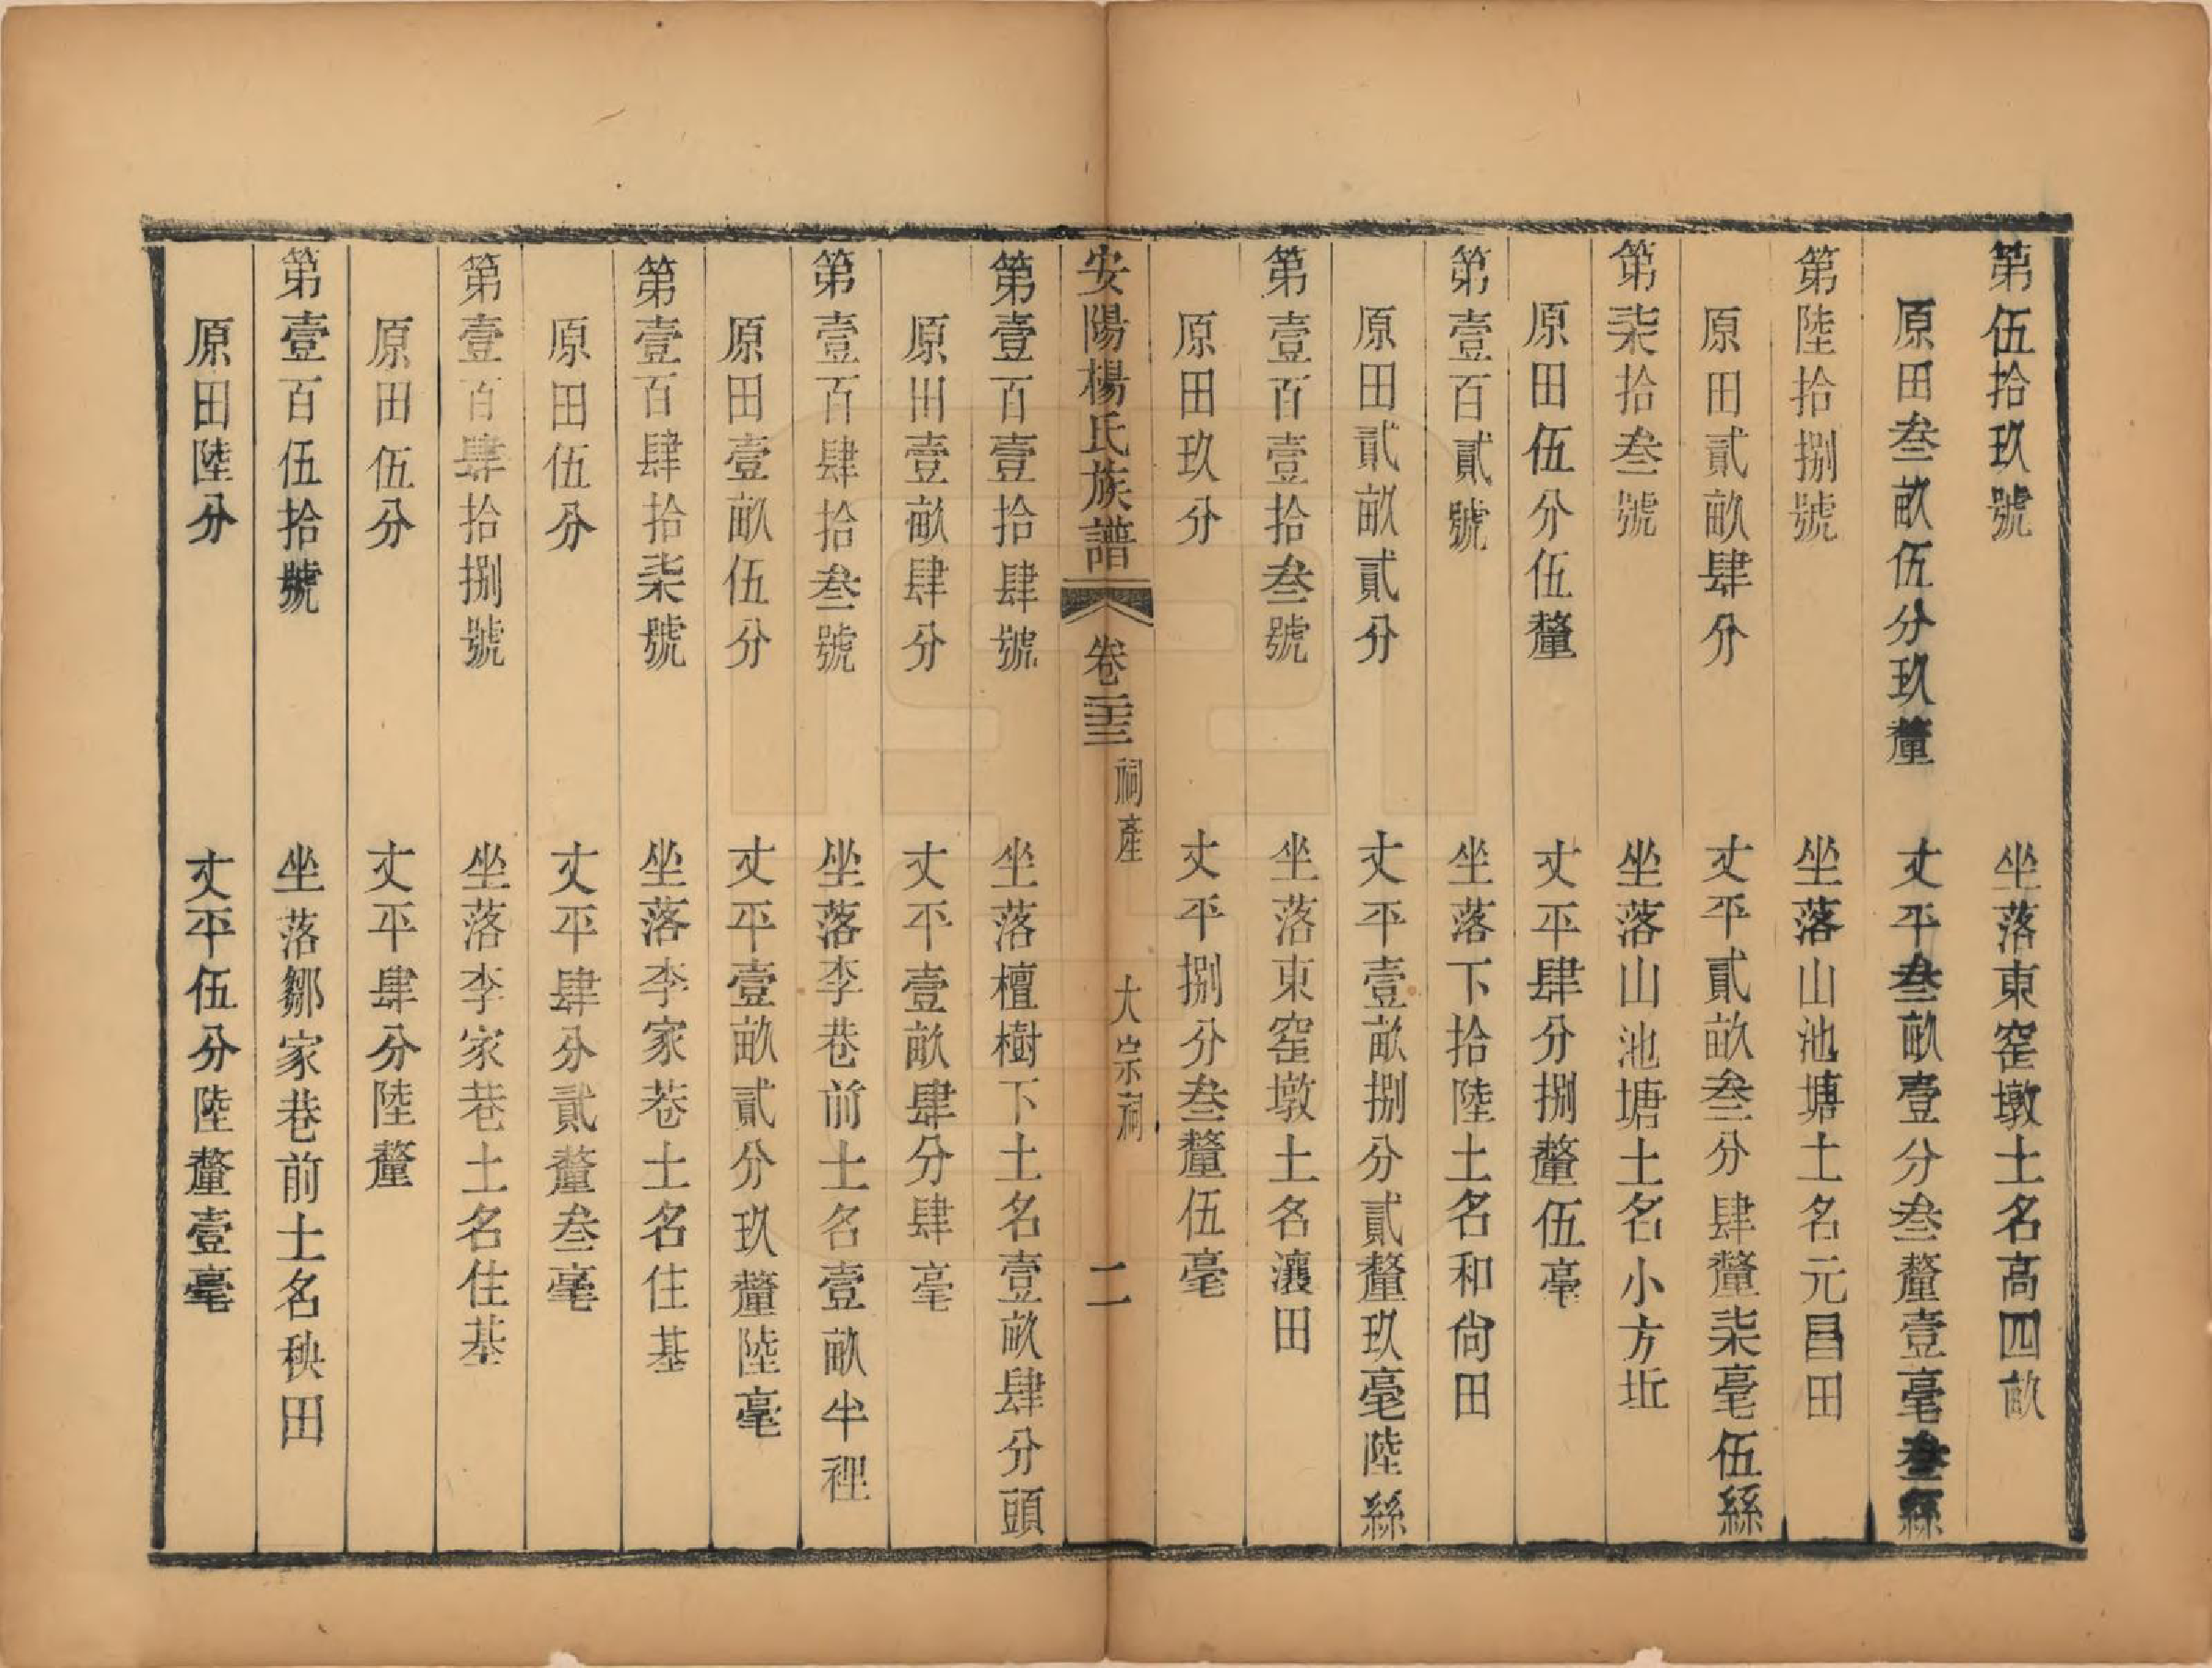 第伍拾玖號　坐落東窑墩土名高四畝
原田叁畝伍分玖釐　丈平叁畝壹分叁釐壹毫叁絲
第陸拾捌號　坐落山池塘土名元昌田
原田貳畝肆分　丈平貳畝叁分肆釐柒毫伍絲
第柒拾叁號　坐落山池塘土名小方坵
原田伍分伍釐　丈平肆分捌釐伍毫
第壹百貳號　坐落下拾陸土名和尙田
原田貳畝貳分　丈平壹畝捌分貳釐玖毫陸絲
第壹百壹拾叁號　坐落東窑墩土名瀼田
原田玖分　丈平捌分叁釐伍毫
安陽楊氏族譜　卷二十三　祠產　大宗祠　二
第壹百壹拾肆號　坐落檀樹下土名壹畝肆分頭
原田壹畝肆分　丈平壹畝肆分肆毫
第壹百肆拾叁號　坐落李巷前土名壹畝半裡
原田壹畝伍分　丈平壹畝貳分玖釐陸毫
第壹百肆拾柒號　坐落李家巷土名住基
原田伍分　丈平肆分貳釐叁毫
第壹百肆拾捌號　坐落李家巷土名住基
原田伍分　丈平肆分陸釐
第壹百伍拾號　坐落鄒家巷前土名秧田
原田陸分　丈平伍分陸釐壹毫